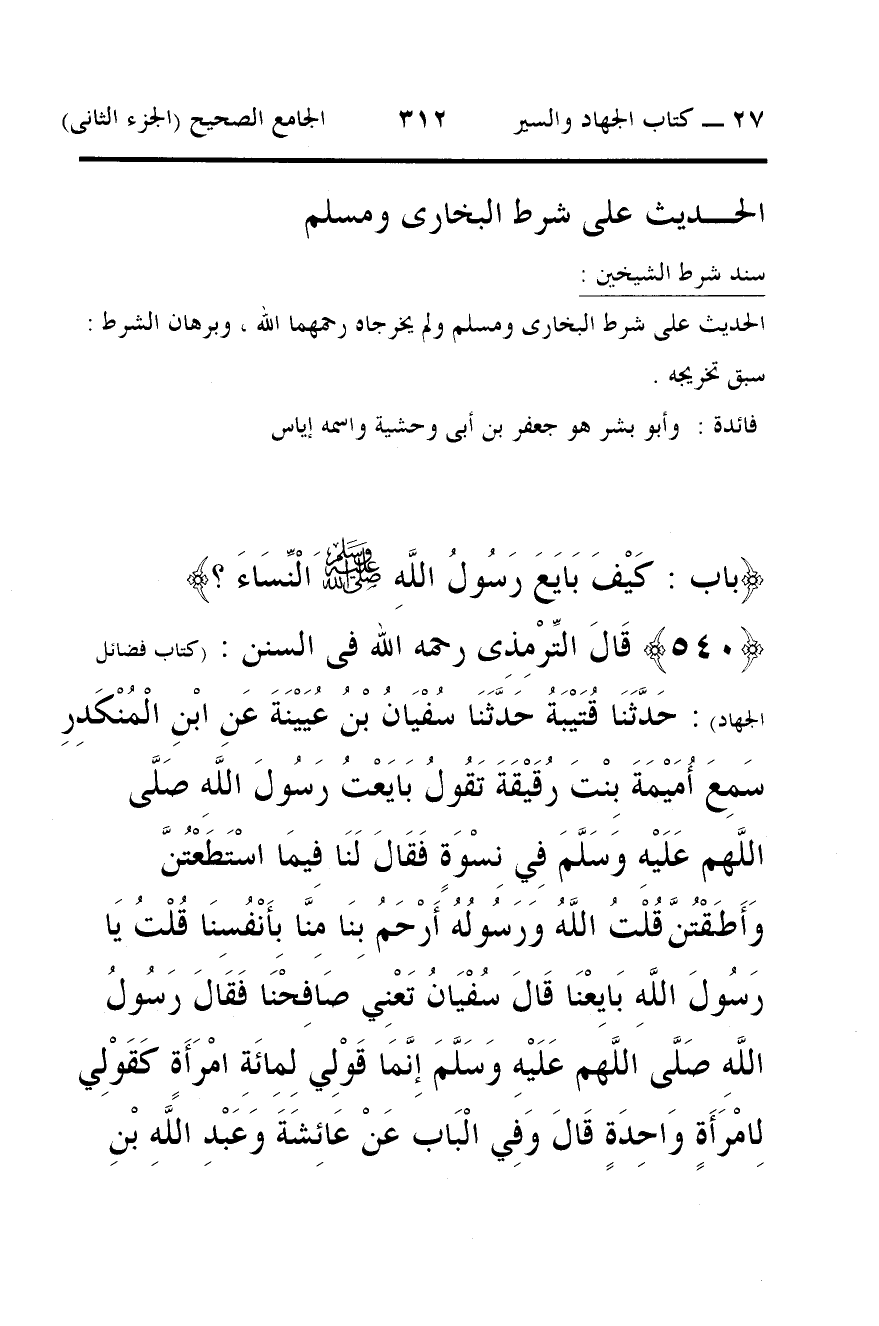 ٢٧ ــ كتاب الجهاد والسير ٣١٢ الجامع الصحيح (الجزء الثانى)
الحـــديث على شرط البخارى ومسلم
سند شرط الشيخين :
الحديث على شرط البخارى ومسلم ولم يخرجاه رحمهما الله ، وبرهان الشرط :
سبق تخريجه .
فائدة : وأبو بشر هو جعفر بن أبى وحشية واسمه إياس
﴿باب : كَيْفَ بَايَعَ رَسُولُ اللَّهِ ﷺ الْنِّسَاءَ ؟﴾
﴿٥٤٠﴾ قَالَ التِّرْمِذِى رحمه الله فى السنن : (كتاب فضائل
الجهاد) : حَدَّثَنَا قُتَيْبَةُ حَدَّثَنَا سُفْيَانُ بْنُ عُيَيْنَةَ عَنِ ابْنِ الْمُنْكَدِرِ
سَمِعَ أُمَيْمَةَ بِنْتَ رُقَيْقَةَ تَقُولُ بَايَعْتُ رَسُولَ اللَّهِ صَلَّى
اللَّهم عَلَيْهِ وَسَلَّمَ فِي نِسْوَةٍ فَقَالَ لَنَا فِيمَا اسْتَطَعْتُنَّ
وَأَطَقْتُنَّ قُلْتُ اللَّهُ وَرَسُولُهُ أَرْحَمُ بِنَا مِنَّا بِأَنْفُسِنَا قُلْتُ يَا
رَسُولَ اللَّهِ بَايِعْنَا قَالَ سُفْيَانُ تَعْنِي صَافِحْنَا فَقَالَ رَسُولُ
اللَّهِ صَلَّى اللَّهم عَلَيْهِ وَسَلَّمَ إِنَّمَا قَوْلِي لِمِائَةِ امْرَأَةٍ كَقَوْلِي
لِامْرَأَةٍ وَاحِدَةٍ قَالَ وَفِي الْبَاب عَنْ عَائِشَةَ وَعَبْدِ اللَّهِ بْنِ